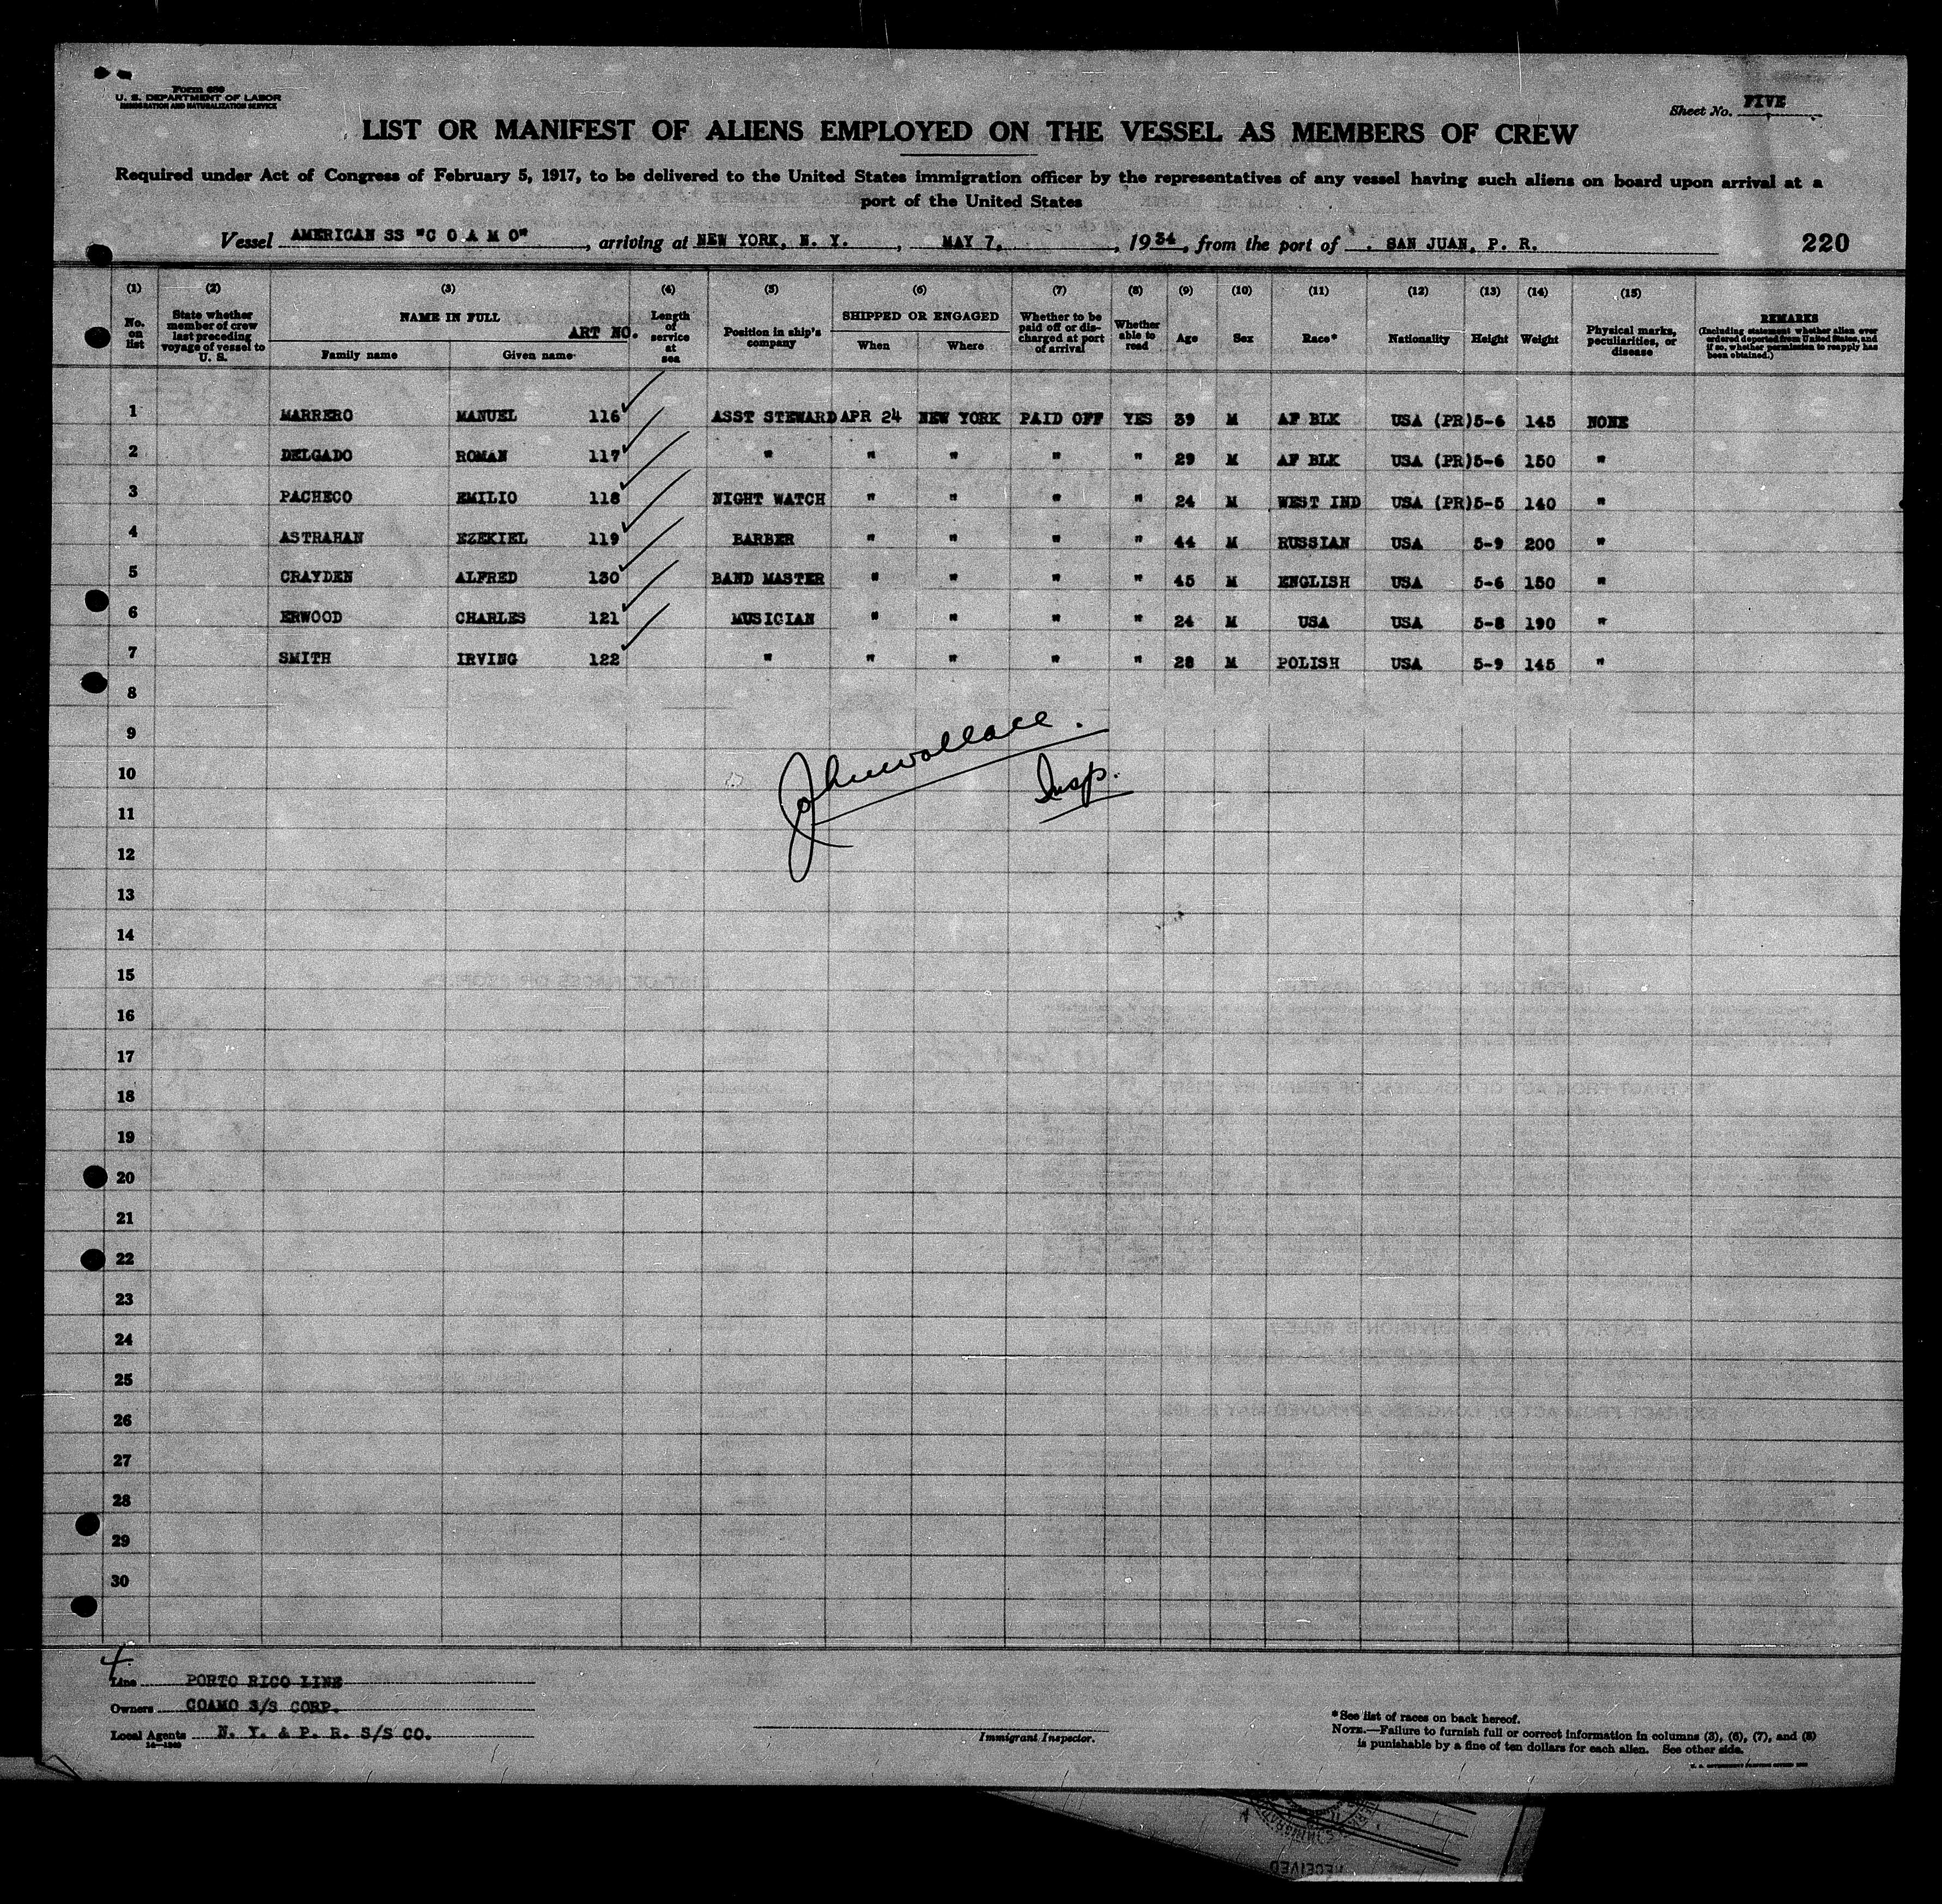 Form 680
U. S. DEPARTMENT OF LABOR
IMMIGRATION AND NATURALIZATION SERVICE
Sheet No. FIVE
LIST OR MANIFEST OF ALIENS EMPLOYED ON THE VESSEL AS MEMBERS OF CREW
Required under Act of Congress of February 5, 1917, to be delivered to the United States immigration officer by the representatives of any vessel having such aliens on board upon arrival at a
port of the United States
Vessel AMERICAN SS "C O A M O", arriving at NEW YORK, N. Y., MAY 7, 1934, from the port of SAN JUAN, P. R. 220
(1) (2) (3) (4) (5) (6) (7) (8) (9) (10) (11) (12) (13) (14) (15)
No. on list
State whether member of crew last preceding voyage of vessel to U. S.
NAME IN FULL
ART NO.
Family name Given name
Length of service at sea
Position in ship's company
SHIPPED OR ENGAGED
When Where
Whether to be paid off or discharged at port of arrival
Whether able to read
Age
Sex
Race*
Nationality
Height
Weight
Physical marks, peculiarities, or disease
REMARKS
(Including statement whether alien ever ordered deported from United States, and if so, whether permission to reapply has been obtained.)
1 MARRERO MANUEL 116 ASST STEWARD APR 24 NEW YORK PAID OFF YES 39 M AF BLK USA (PR) 5-6 145 NONE
2 DELGADO ROMAN 117 " " " " " 29 M AF BLK USA (PR) 5-6 150 "
3 PACHECO EMILIO 118 NIGHT WATCH " " " " 24 M WEST IND USA (PR) 5-5 140 "
4 ASTRAHAN EZEKIEL 119 BARBER " " " " 44 M RUSSIAN USA 5-9 200 "
5 CRAYDEN ALFRED 130 BAND MASTER " " " " 45 M ENGLISH USA 5-6 150 "
6 ERWOOD CHARLES 121 MUSICIAN " " " " 24 M USA USA 5-8 190 "
7 SMITH IRVING 122 " " " " " 28 M POLISH USA 5-9 145 "
8
9
John Wallace.
10
Insp.
11
12
13
14
15
16
17
18
19
20
21
22
23
24
25
26
27
28
29
30
Line PORTO RICO LINE
Owners COAMO S/S CORP.
Local Agents N. Y. & P. R. S/S CO.
Immigrant Inspector.
*See list of races on back hereof.
NOTE.—Failure to furnish full or correct information in columns (3), (6), (7), and (8)
is punishable by a fine of ten dollars for each alien. See other side.
RECEIVED